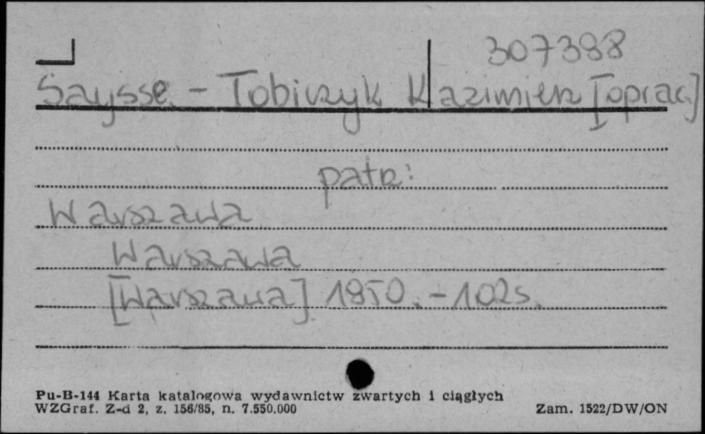 307388
Saysse - Tobiczyk Kazimierz [oprac.]
patrz:
Warszawa
Warszawa
[Warszawa] 1950. - 102 s.
Pu-B-144 Karta katalogowa wydawnictw zwartych i ciągłych
WZGraf. Z-d 2, z. 156/85, n. 7.550.000
Zam. 1522/DW/ON